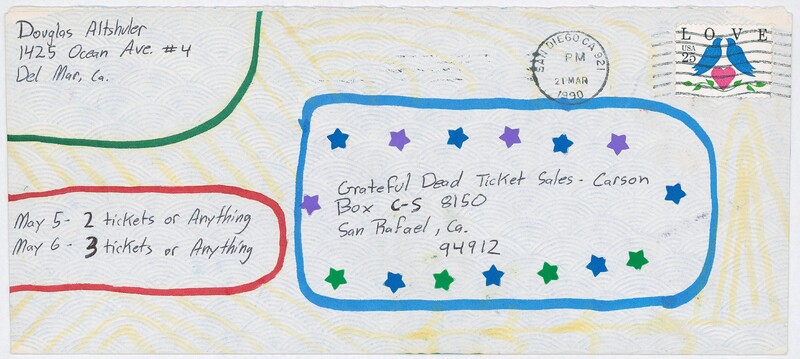 Douglas Altshuler
1425 Ocean Ave. #4
Del Mar, Ca.
SAN DIEGO CA 921
PM
21 MAR
1990
LOVE
USA
25
Grateful Dead Ticket Sales - Carson
Box C-S 8150
San Rafael, Ca.
94912
May 5 - 2 tickets or Anything
May 6 - 3 tickets or Anything